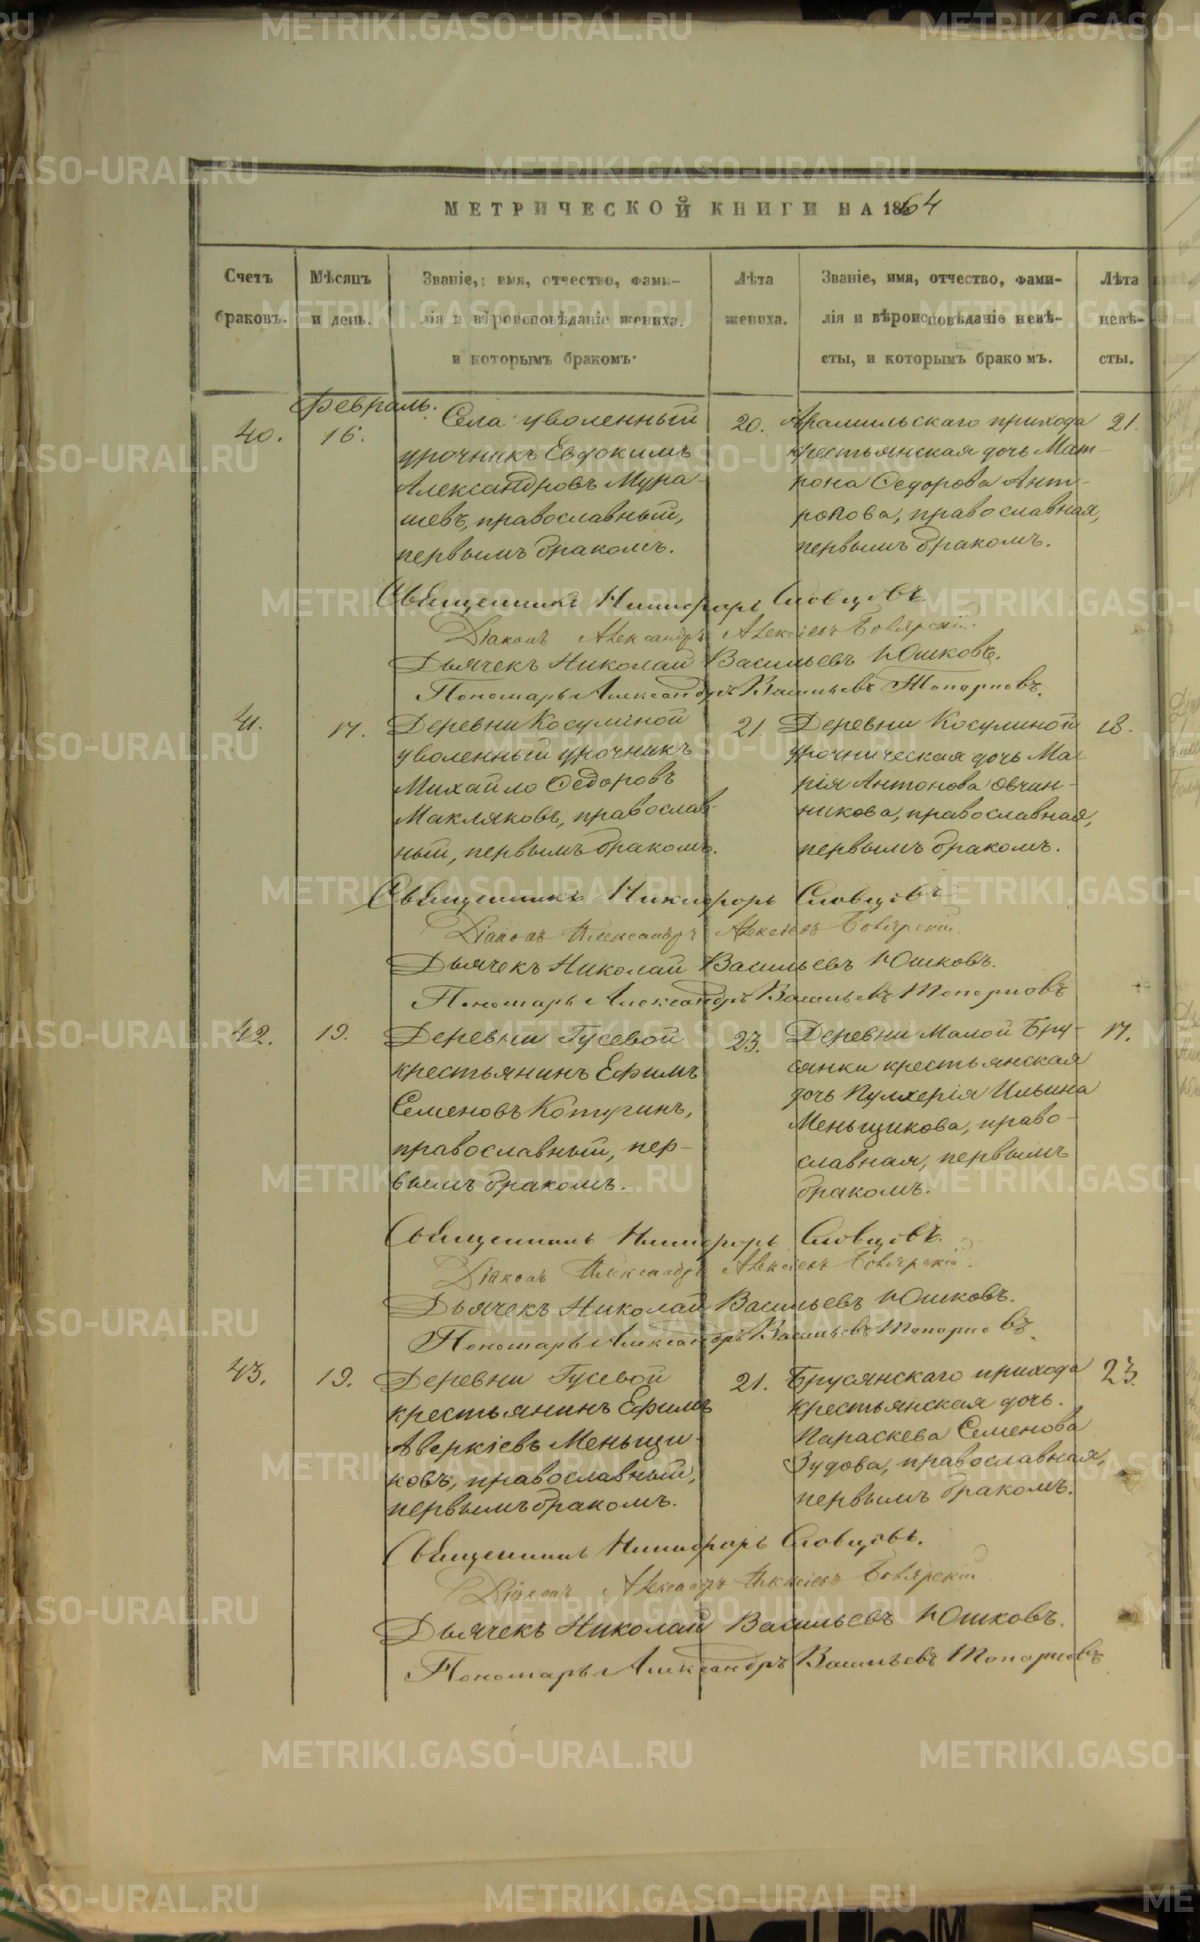 МЕТРИЧЕСКОЙ КНИГИ НА 1864
Счетъ браковъ.
Мѣсяцъ и день.
Званіе, имя, отчество, фами-
лія и вѣроисповѣданіе жениха.
и которымъ бракомъ.
Лѣта жениха.
Званіе, имя, отчество, фами-
лія и вѣроисповѣданіе невѣ-
сты, и которымъ бракомъ.
Лѣта невѣ-
сты.
Февраль.
40.
16.
Села уволенный
урочникъ Евдокимъ
Александровъ Мура-
шевъ, православный,
первымъ бракомъ.
20.
Арамильскаго прихода
крестьянская дочь Мат-
рона Федорова Ант-
ропова, православная,
первымъ бракомъ.
21.
Священникъ Никифоръ Словцовъ
Діаконъ Александръ Алексіевъ Боярскій.
Дьячекъ Николай Васильевъ Юшковъ.
Пономарь Александръ Васильевъ Топорковъ.
41.
17.
Деревни Косулиной
уволенный урочникъ
Михайло Федоровъ
Макляковъ, православ-
ный, первымъ бракомъ.
21.
Деревни Косулиной
урочническая дочь Ма-
рія Антонова Овчин-
никова, православная,
первымъ бракомъ.
18.
Священникъ Никифоръ Словцовъ
Діаконъ Александръ Алексіевъ Боярскій.
Дьячекъ Николай Васильевъ Юшковъ.
Пономарь Александръ Васильевъ Топорковъ
42.
19.
Деревни Гусевой
крестьянинъ Ефимъ
Семеновъ Котугинъ,
православный, пер-
вымъ бракомъ.
23.
Деревни Малой Бру-
сянки крестьянская
дочь Пулхерія Ильина
Меньщикова, право-
славная, первымъ
бракомъ.
17.
Священникъ Никифоръ Словцовъ.
Діаконъ Александръ Алексіевъ Боярскій.
Дьячекъ Николай Васильевъ Юшковъ.
Пономарь Александръ Васильевъ Топорковъ.
43.
19.
Деревни Гусевой
крестьянинъ Ефимъ
Аверкіевъ Меньщи-
ковъ, православный,
первымъ бракомъ.
21.
Брусянскаго прихода
крестьянская дочь
Параскева Семенова
Зудова, православная,
первымъ бракомъ.
23.
Священникъ Никифоръ Словцовъ.
Діаконъ Александръ Алексіевъ Боярскій
Дьячекъ Николай Васильевъ Юшковъ.
Пономарь Александръ Васильевъ Топорковъ
METRIKI.GASO-URAL.RU